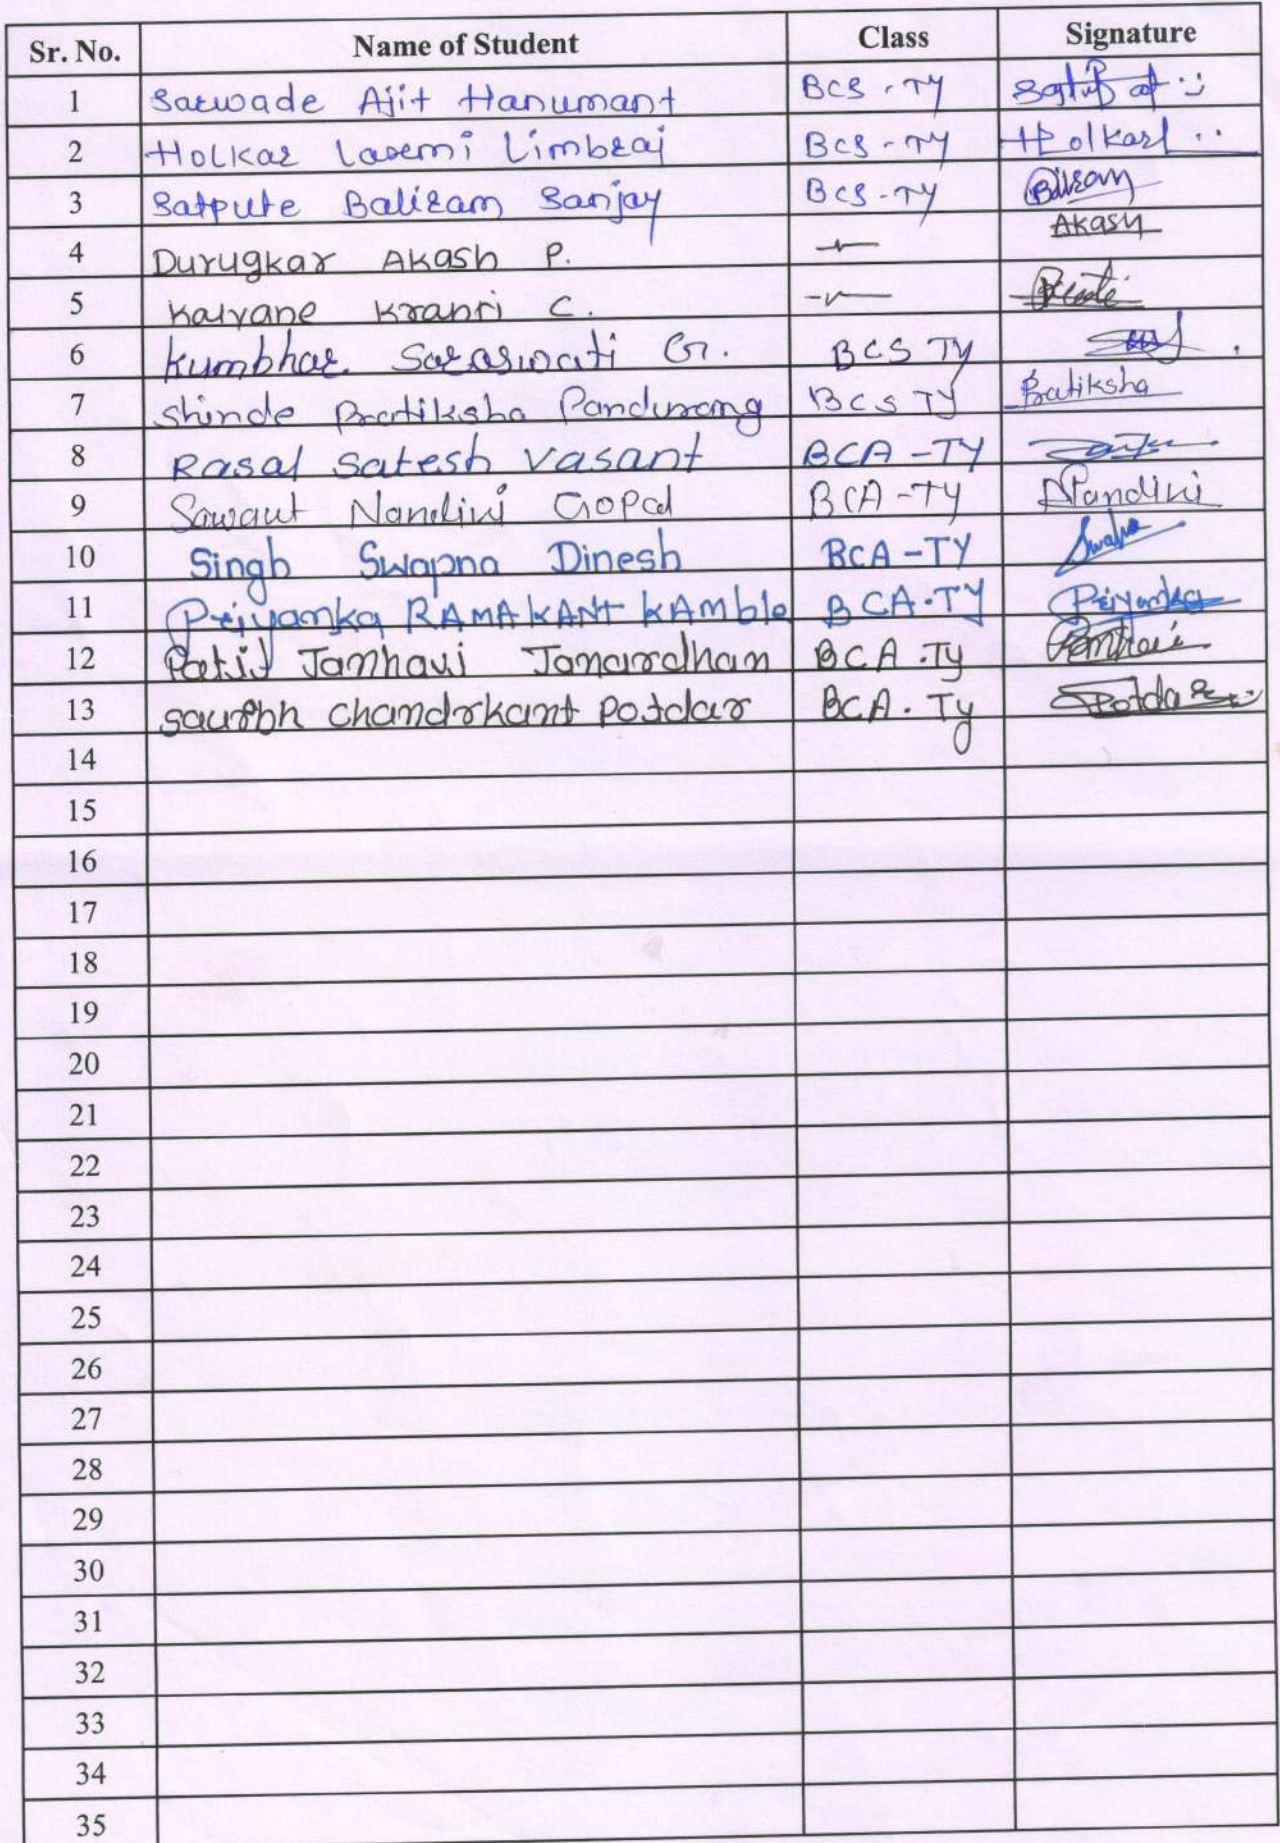 Sr. No. Name of Student Class Signature
1 Sarwade Ajit Hanumant BCS - TY
2 Holkar Laxmi Limbraj BCS - TY Holkarl
3 Satpute Baliram Sanjay BCS - TY
4 Durugkar Akash P. Akash
5 Kalyane Kranti C.
6 Kumbhar Saraswati G. BCS TY
7 Shinde Pratiksha Pandurang BCS TY Pratiksha
8 Rasal Satesh Vasant BCA - TY
9 Sawant Nandini Gopal BCA - TY Nandini
10 Singh Swapna Dinesh BCA - TY
11 Priyanka RAMAKANT KAmble BCA. TY Priyanka
12 Patil Janhavi Janardhan BCA . Ty
13 saurbh chandrkant potdar BCA . Ty Potdar
14
15
16
17
18
19
20
21
22
23
24
25
26
27
28
29
30
31
32
33
34
35